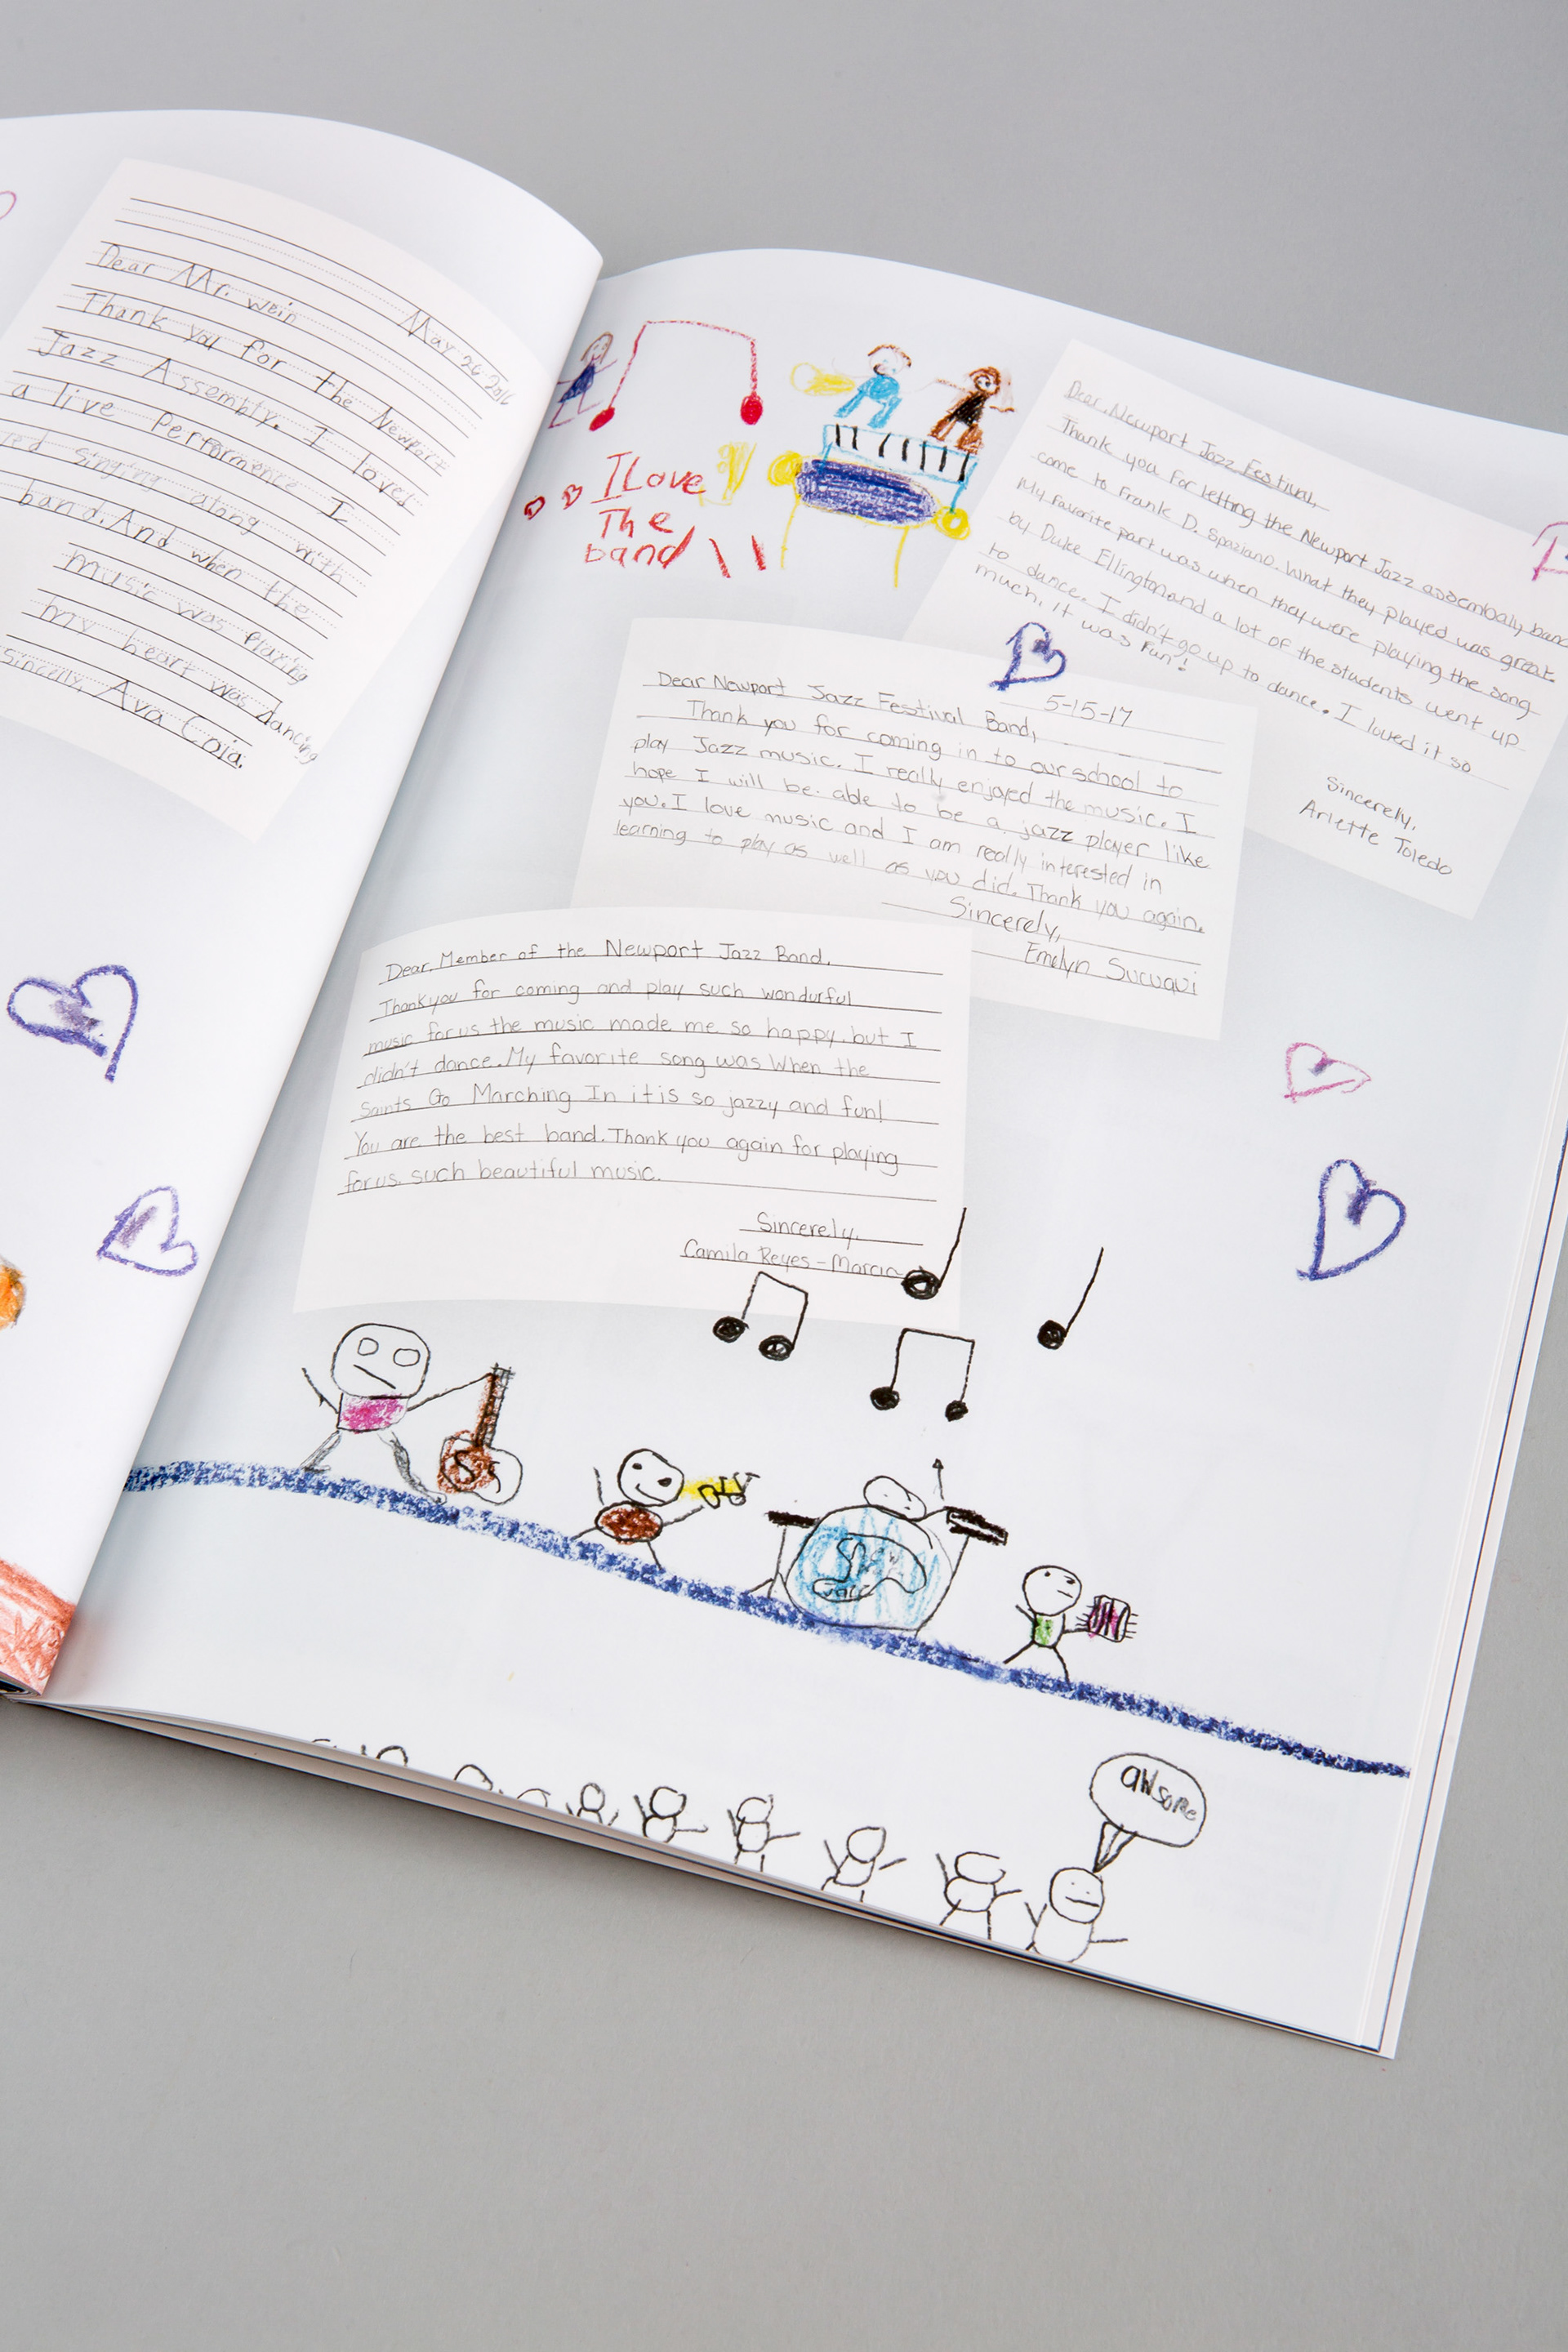 May 26 2016
Dear Mr. wein
Thank you for the Newport
Jazz Assembly. I loved
a live Performence I
singing along with
band. And when the
music was Plaring
my heart was dancing
Sincerly, Ava Coia.
I Love
The
band
Dear, Newport Jazz Festival,
Thank you for letting the Newport Jazz assembaly band
come to Frank D. Spaziano. What they played was great.
My favorite part was when they were playing the song
by Duke Ellington and a lot of the students went up
to dance. I didn't go up to dance. I loved it so
much, it was Fun!
Sincerely,
Arlette Toledo
5-15-17
Dear Newport Jazz Festival Band,
Thank you for coming in to our school to
play Jazz music. I really enjoyed the music. I
hope I will be able to be a jazz player like
you. I love music and I am really interested in
learning to play as well as you did. Thank you again.
Sincerely,
Emelyn Sucuqui
Dear, Member of the Newport Jazz Band,
Thank you for coming and play such wondurful
music for us the music made me so happy, but I
didn't dance. My favorite song was When the
Saints Go Marching In it is so jazzy and fun!
You are the best band. Thank you again for playing
for us. such beautiful music.
Sincerely,
Camila Reyes-Marcia
Jazz
awsome